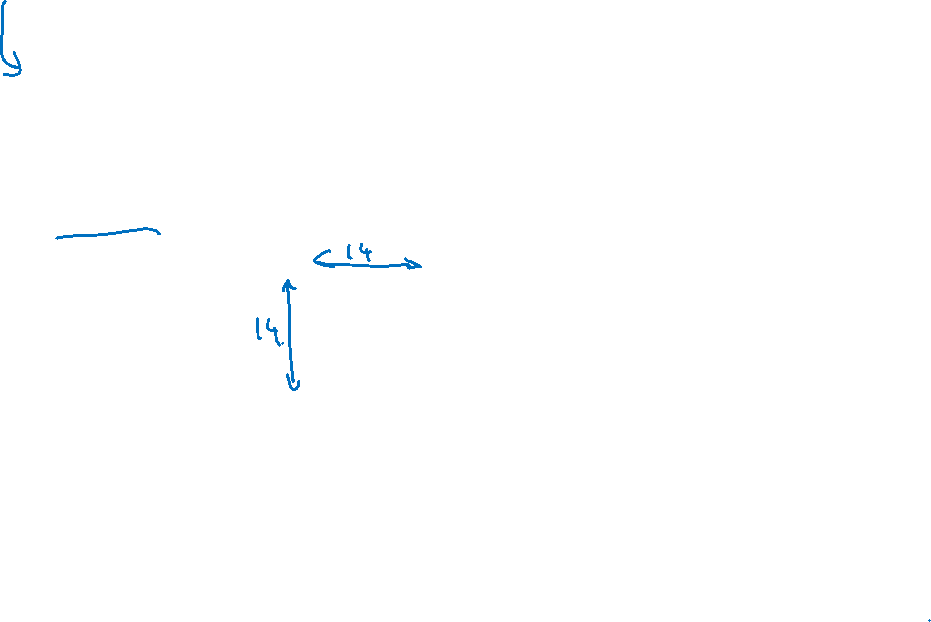 14
14